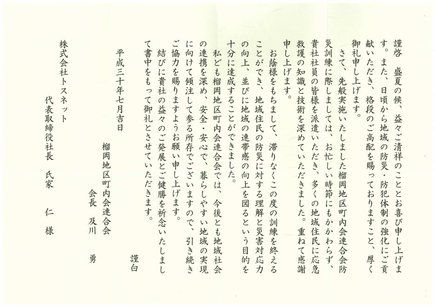 謹啓　盛夏の候、益々ご清祥のこととお喜び申し上げま
す。また、日頃から地域の防災・防犯体制の強化にご貢
献いただき、格段のご高配を賜っておりますこと、厚く
御礼申し上げます。
さて、先般実施いたしました榴岡地区町内会連合会防
災訓練に際しましては、お忙しい時節にもかかわらず、
貴社社員の皆様を派遣いただき、多くの地域住民に応急
救護の知識と技術を深めていただきました。重ねて感謝
申し上げます。
お蔭様をもちまして、滞りなくこの度の訓練を終える
ことができ、地域住民の防災に対する理解と災害対応力
の向上、並びに地域の連帯感の向上を図るという目的を
十分に達成することができました。
私ども榴岡地区町内会連合会では、今後とも地域社会
の連携を深め、安全・安心で、暮らしやすい地域の実現
に向けて傾注して参る所存でございますので、引き続き
ご協力を賜りますようお願い申し上げます。
結びに貴社の益々のご発展とご健勝を祈念いたしまし
て書中をもって御礼とさせていただきます。
謹白
平成三十年七月吉日
榴岡地区町内会連合会
会長　及川　勇
株式会社トスネット
代表取締役社長　氏家　仁　様